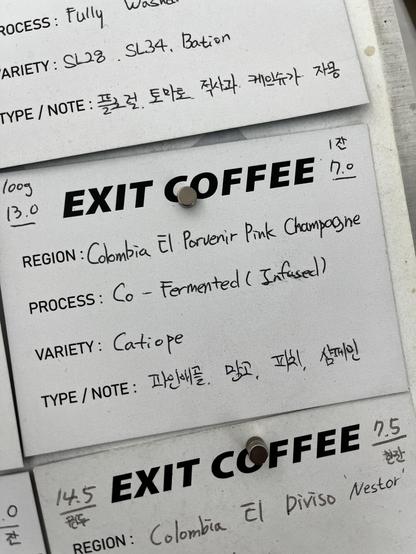 PROCESS: Fully Washed
VARIETY: SL28. SL34. Bation
TYPE / NOTE: 플로럴. 토마토. 적사과. 케인슈가. 자몽
100g
13.0
EXIT COFFEE
1잔
7.0
REGION: Colombia El Porvenir Pink Champagne
PROCESS: Co - Fermented (Infused)
VARIETY: Catiope
TYPE / NOTE: 파인애플. 망고, 피치, 샴페인
.0
잔
14.5
원두
EXIT COFFEE
7.5
한잔
REGION: Colombia El Diviso 'Nestor'